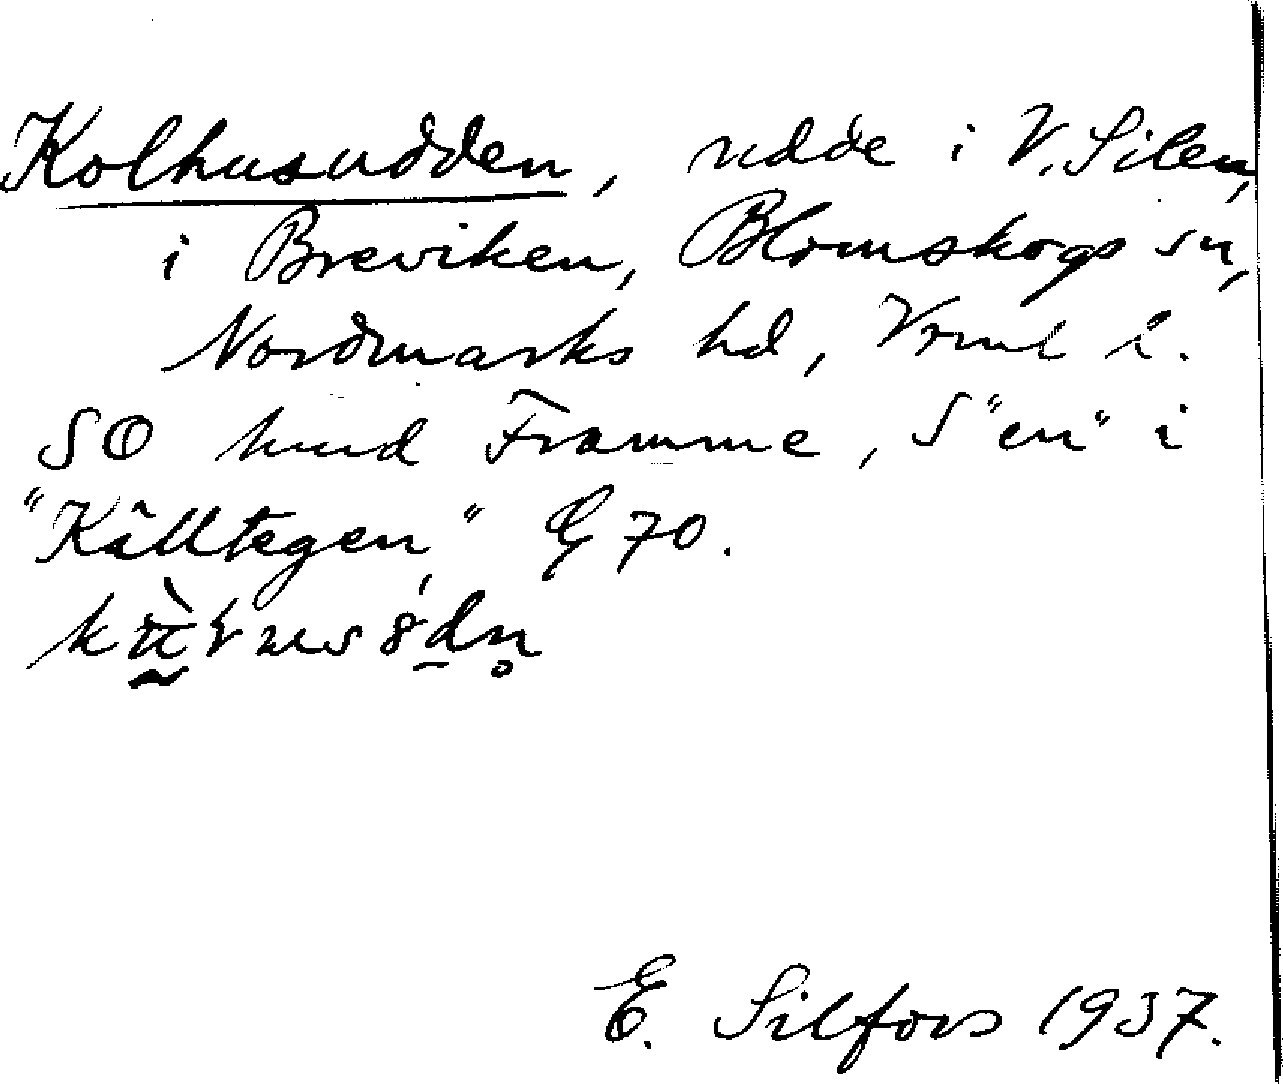 Kolhusudden, udde i V. Silen,
i Breviken, Blomskogs sn,
Nordmarks hd, Vrml l.
SO hund Framme, S "en" i
"Källtegen," G 70.
E. Silfors 1937.